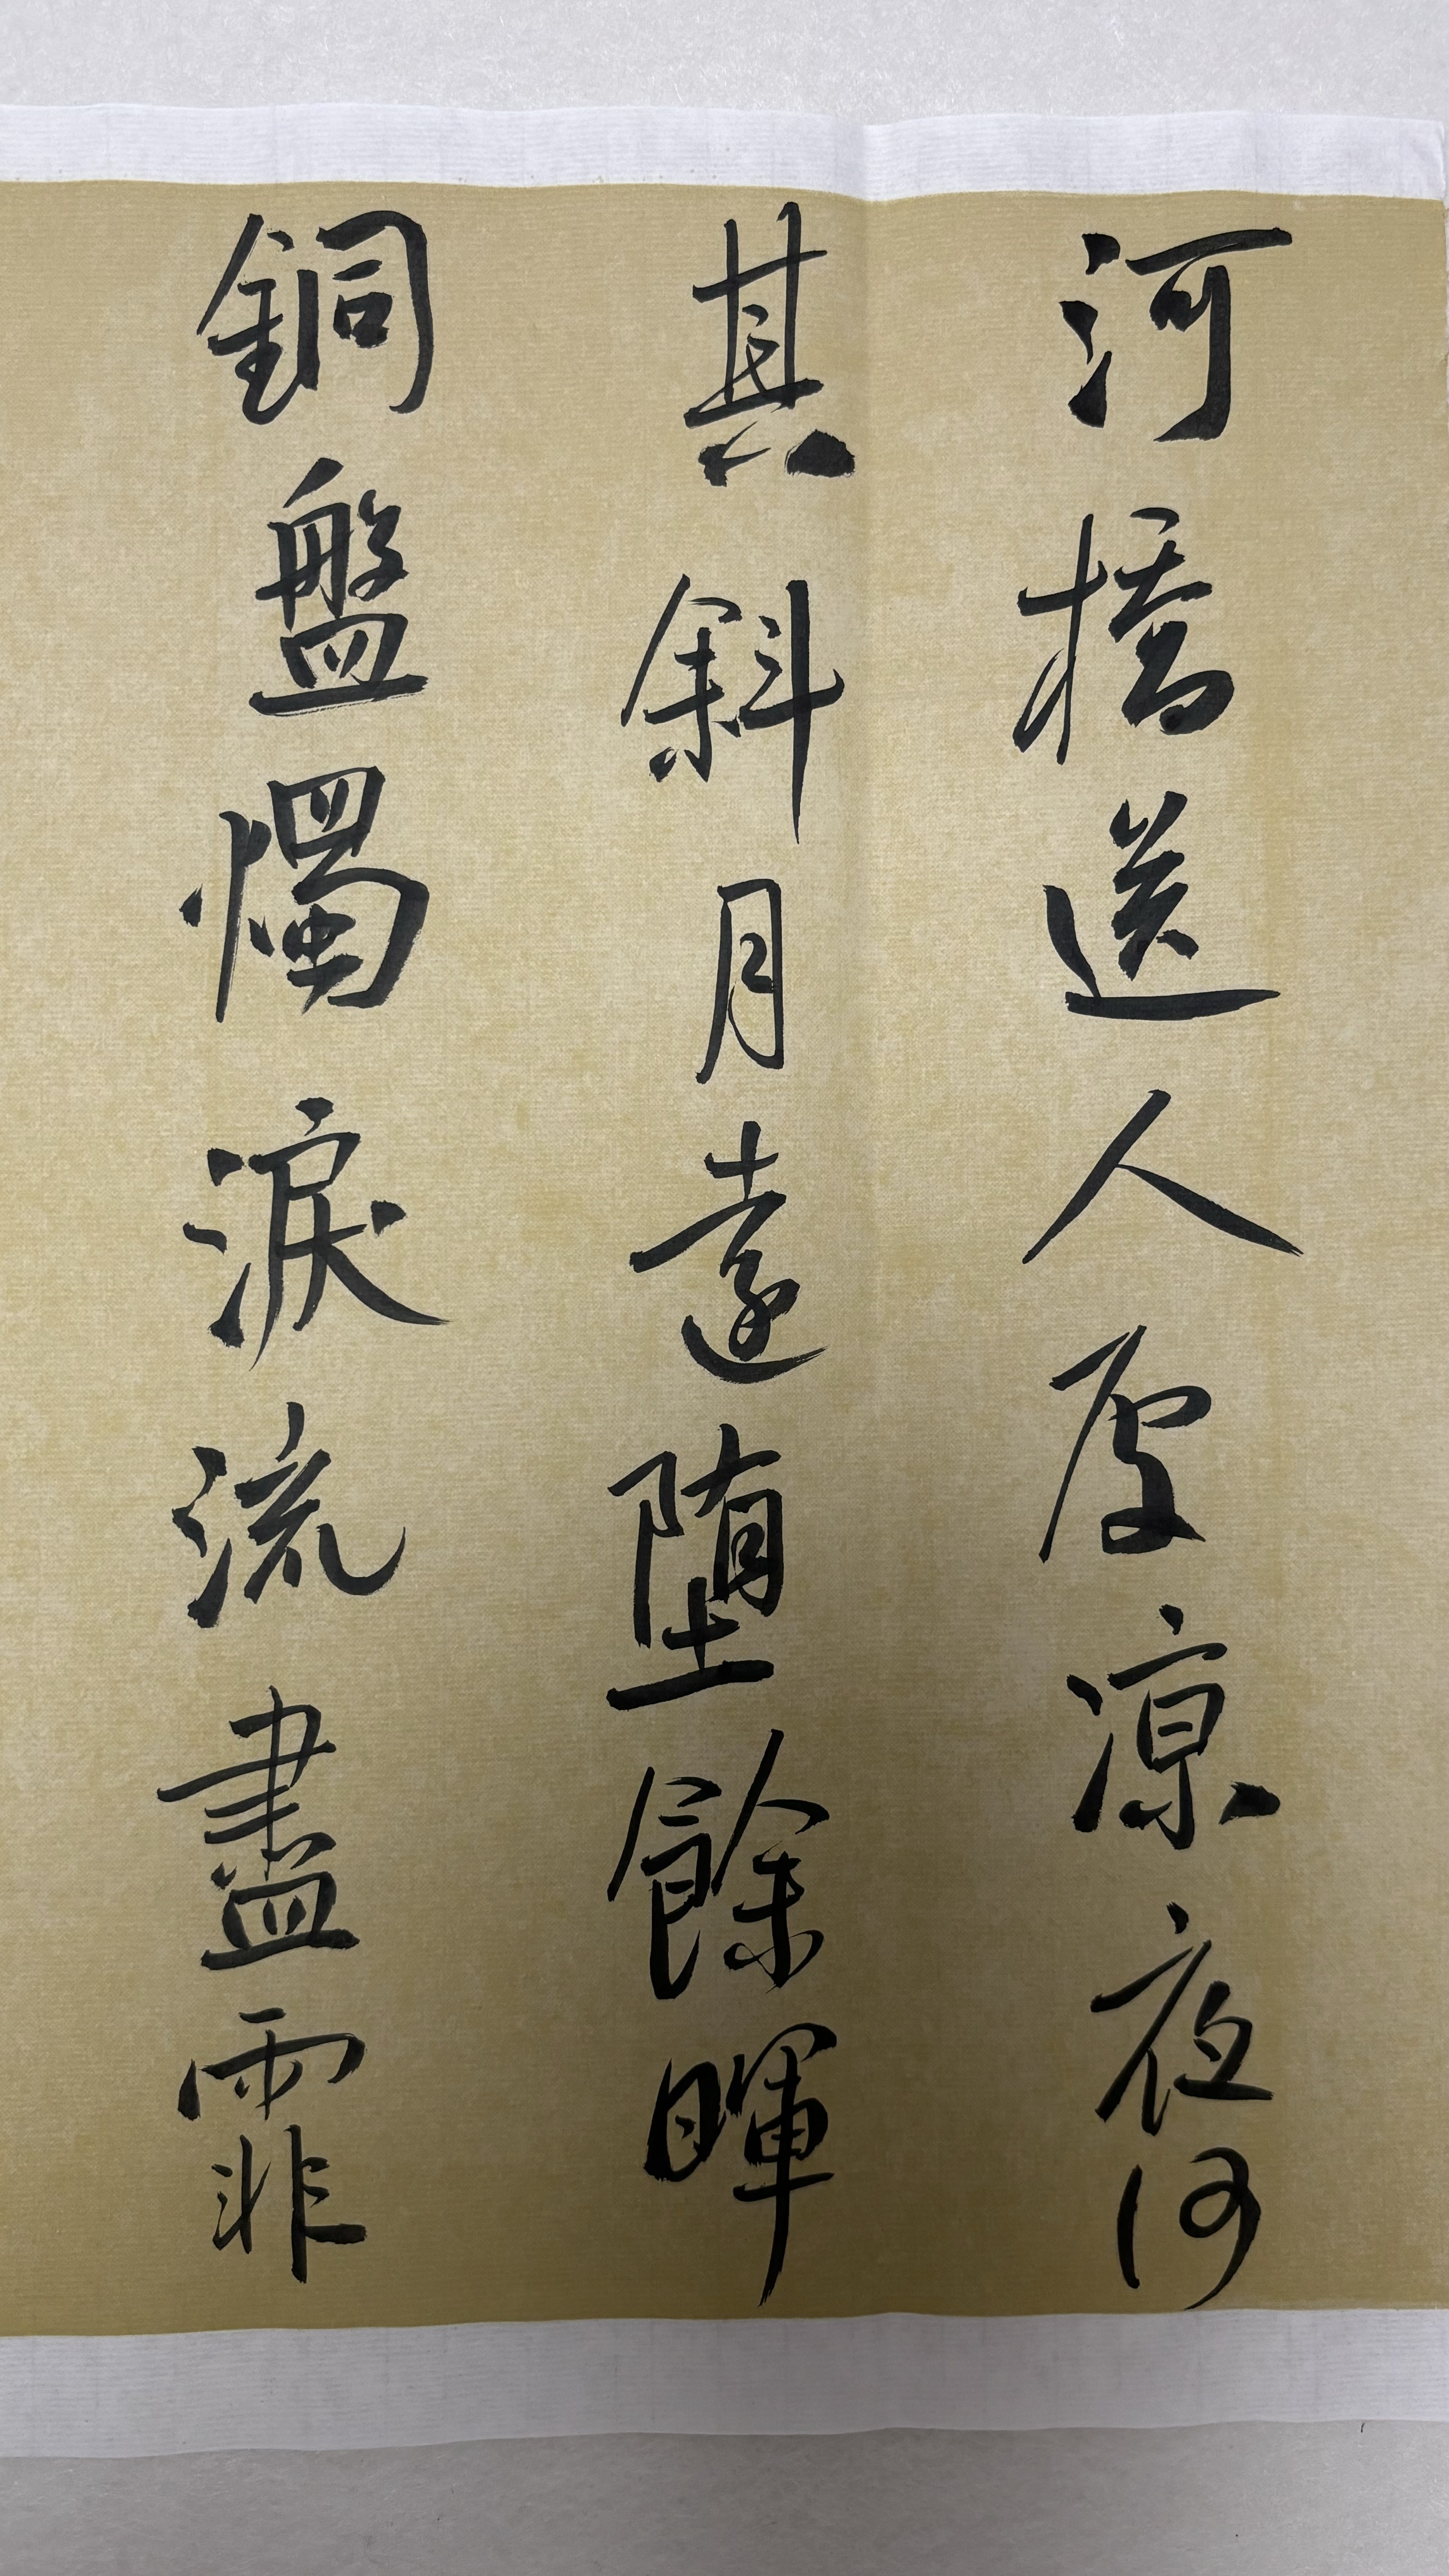 河橋送人處涼夜何
其斜月遠墮餘暉
銅盤燭淚流盡霏